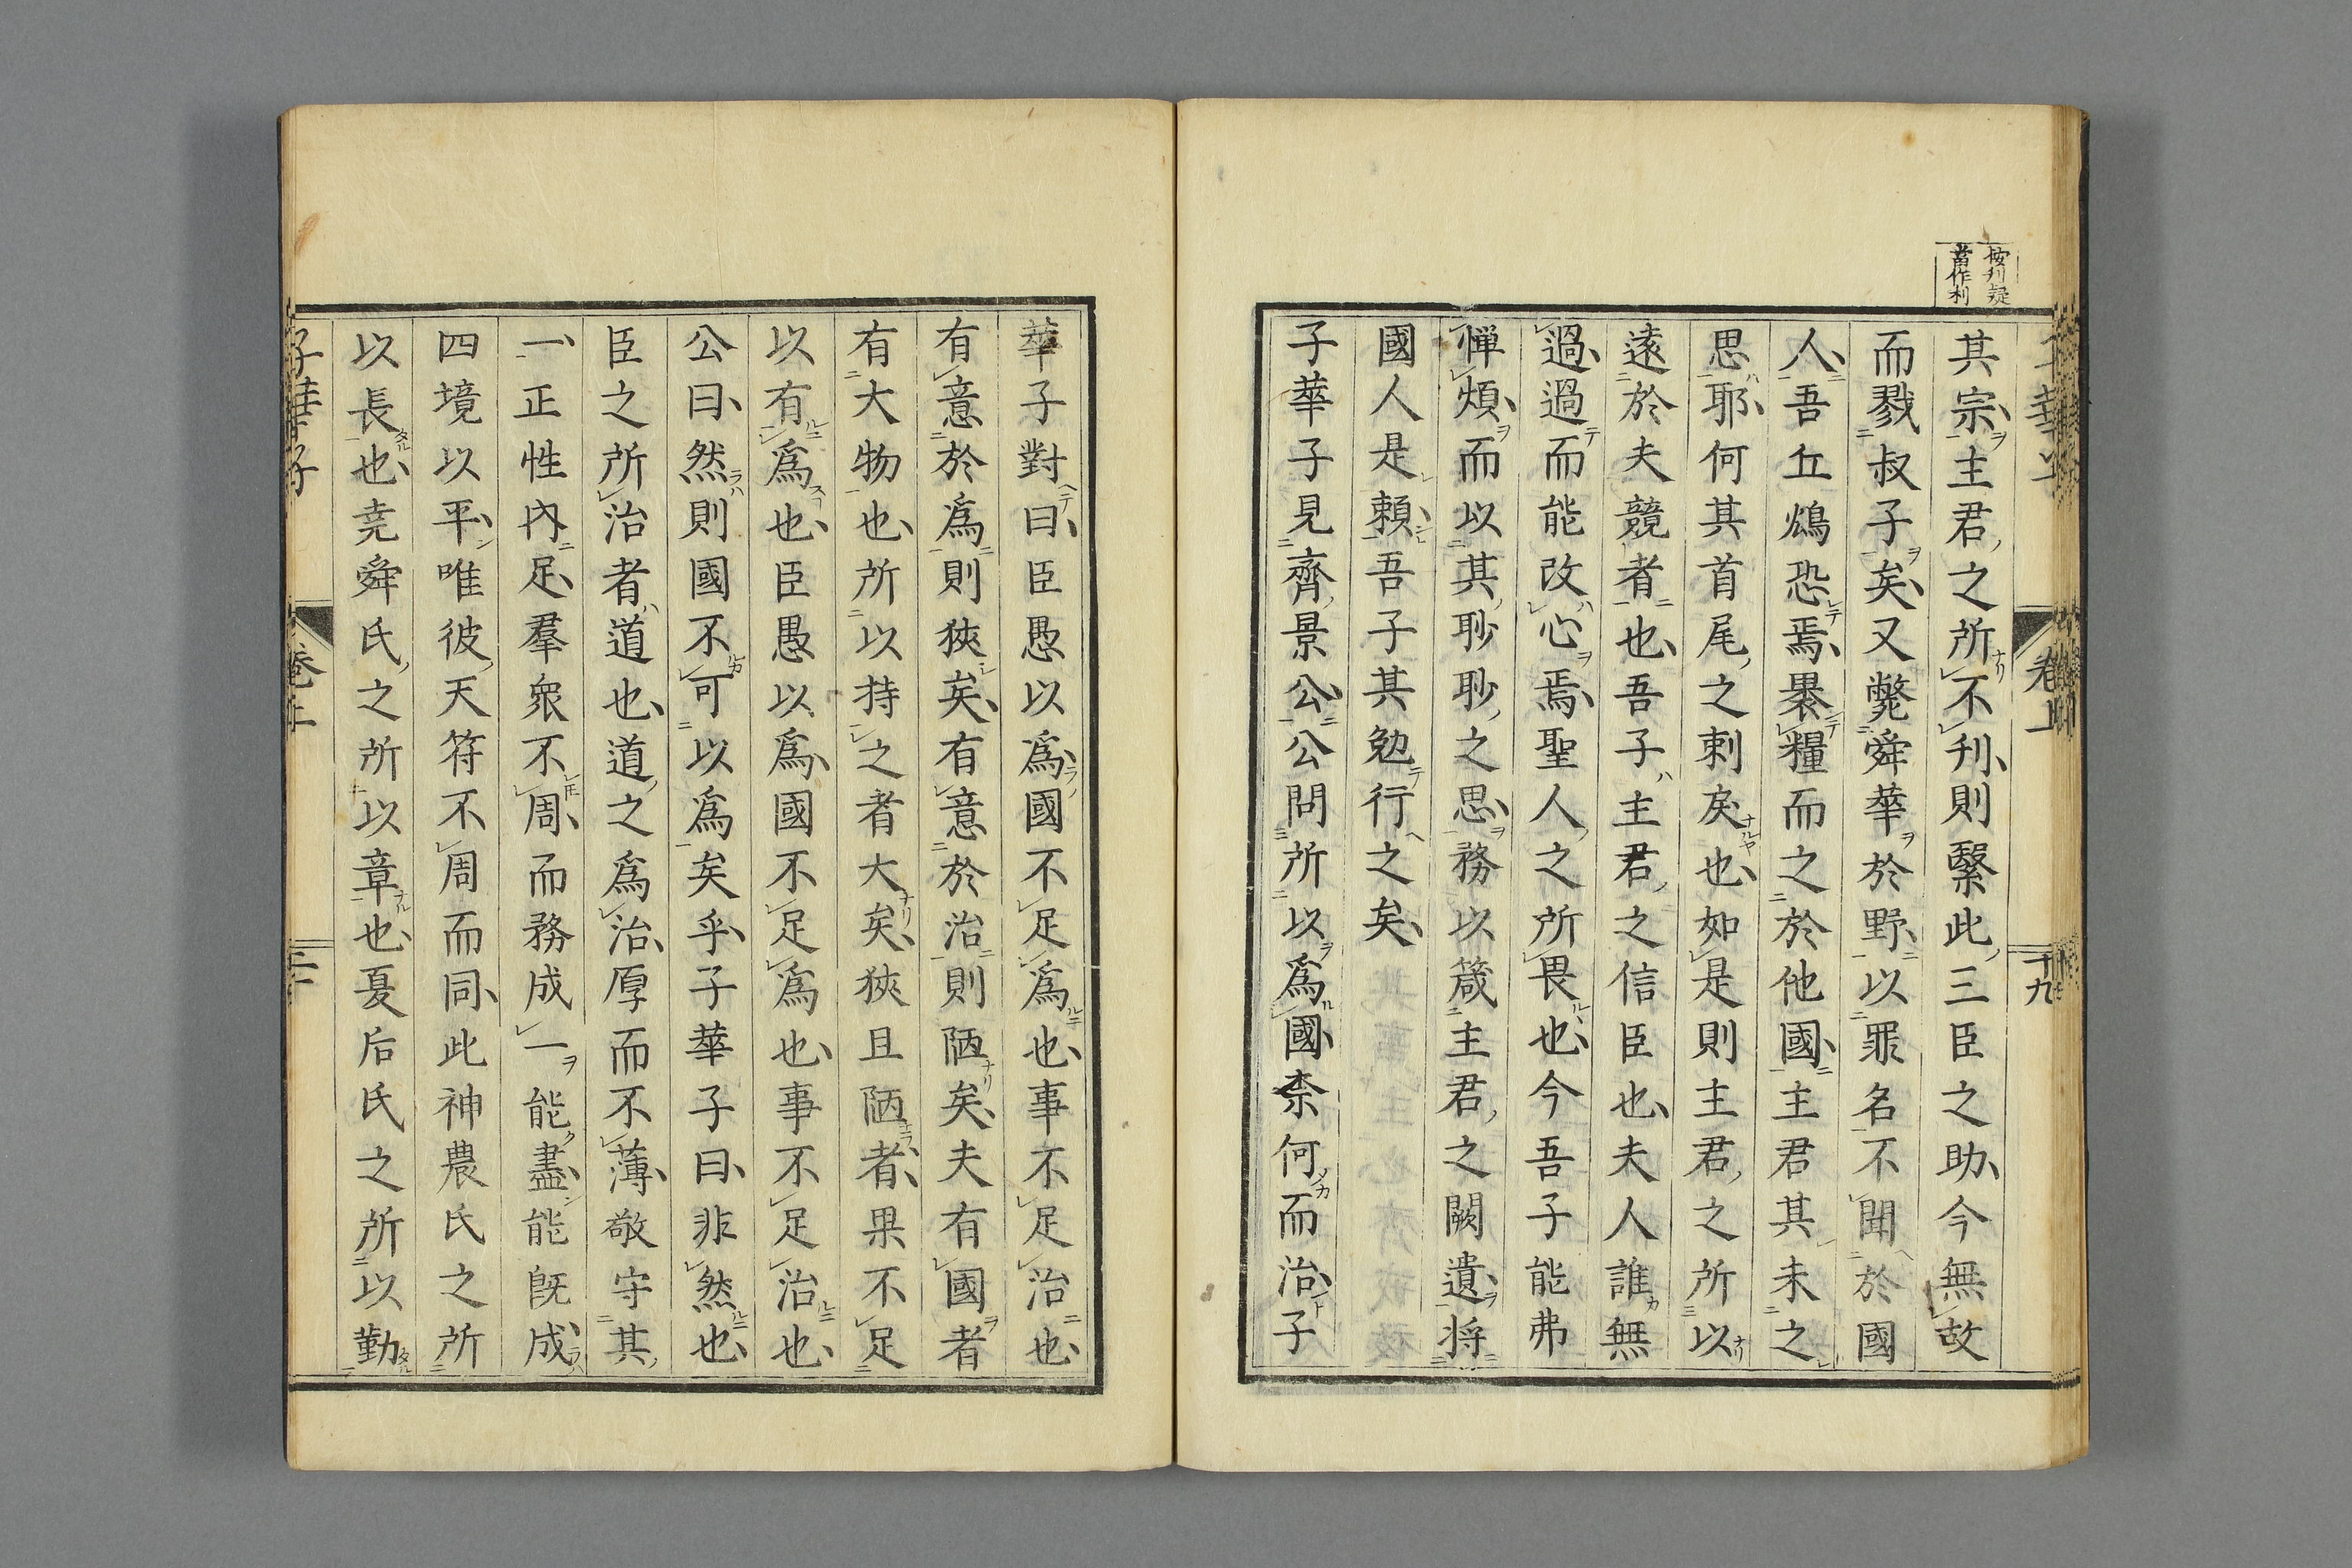 按刋疑
當作利
其宗主君之所不刋則緊此三臣之助今無故
而戮叔子矣又斃舜華於野以罪名不聞於國
人吾丘鴆恐焉褁糧而之於他國主君其未之
思耶何其首尾之刺戾也如是則主君之所以
遠於夫競者也吾子主君之信臣也夫人誰無
過過而能改心焉聖人之所畏也今吾子能弗
憚煩而以其耿耿之思務以箴主君之闕遺将
國人是頼吾子其勉行之矣
子華子見齊景公公問所以爲國柰何而治子
卷上
十九
華子對曰臣愚以爲國不足爲也事不足治也
有意於爲則狹矣有意於治則陋矣夫有國者
有大物也所以持之者大矣狹且陋者果不足
以有爲也臣愚以爲國不足爲也事不足治也
公曰然則國不可以爲矣乎子華子曰非然也
臣之所治者道也道之爲治厚而不薄敬守其
一正性內足羣衆不周而務成一能盡能旣成
四境以平唯彼天符不周而同此神農氏之所
以長也尭舜氏之所以章也夏后氏之所以勤